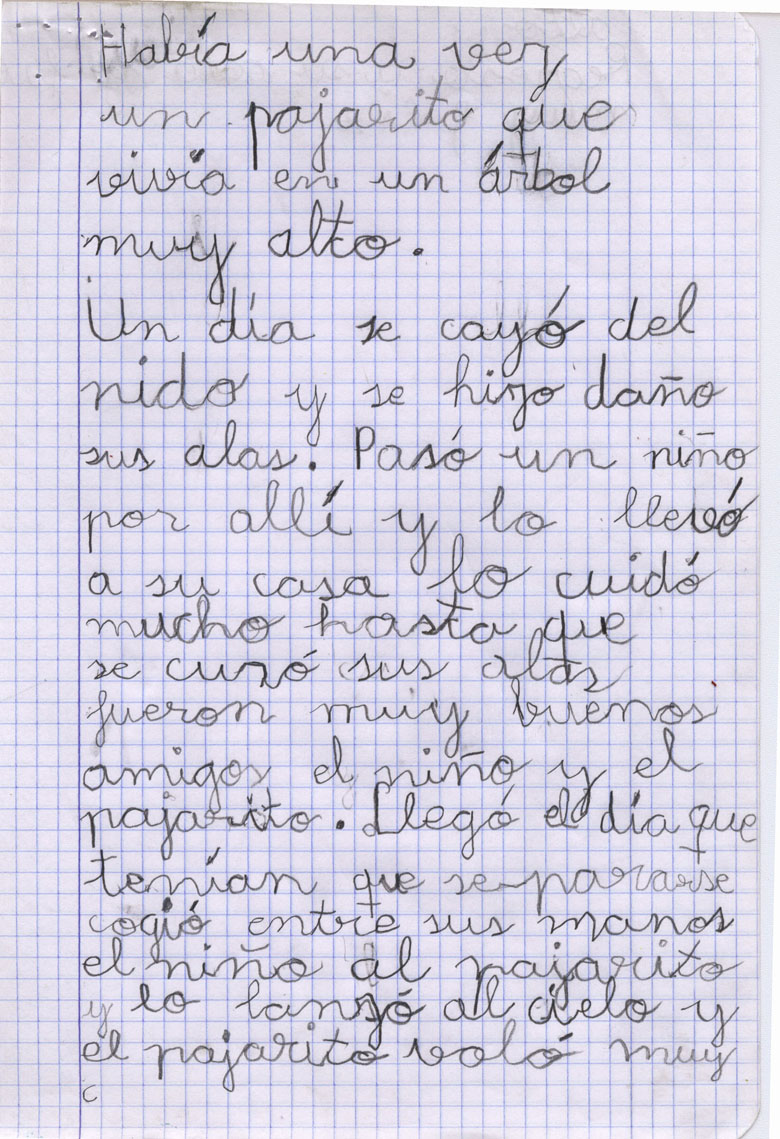 Había una vez
un pajarito que
vivía en un árbol
muy alto.
Un día se cayó del
nido y se hizo daño
sus alas. Pasó un niño
por allí y lo llevó
a su casa lo cuidó
mucho hasta que
se curó sus alas
fueron muy buenos
amigos el niño y el
pajarito. Llegó el día que
tenían que se-pararse
cogió entre sus manos
el niño al pajarito
y lo lanzó al cielo y
el pajarito voló muy
c